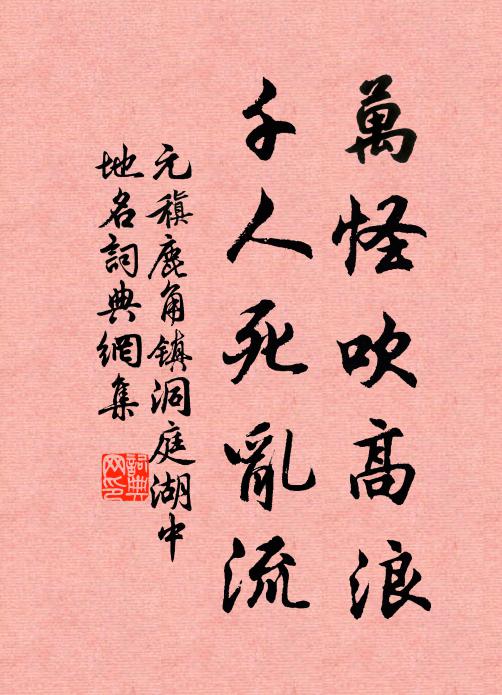 萬怪吹高浪
千人死亂流
元稹鹿角镇洞庭湖中
地名詞典網集
詞典網印